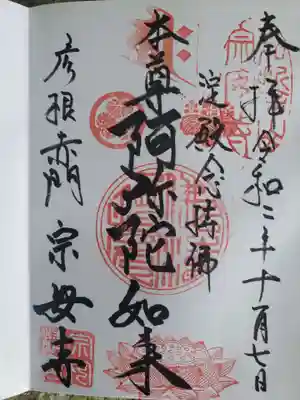 奉拝 令和二年十一月七日
淀殿念持佛
本尊阿弥陀如来
彦根赤門 宗安寺